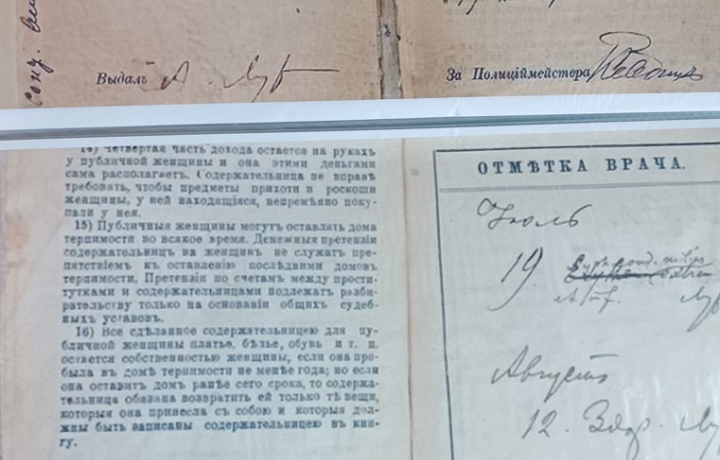 Выдалъ
За Полиціймейстера
14) Четвертая часть дохода остается на рукахъ
у публичной женщины и она этими деньгами
сама располагаетъ. Содержательница не вправѣ
требовать, чтобы предметы прихоти и роскоши
женщины, у ней находящіяся, непремѣнно поку-
пали у нея.
15) Публичныя женщины могутъ оставлять дома
терпимости во всякое время. Денежныя претензіи
содержательницъ на женщинъ не служатъ пре-
пятствіемъ къ оставленію послѣдними домовъ
терпимости. Претензіи по счетамъ между прости-
тутками и содержательницами подлежатъ разби-
рательству только на основаніи общихъ судеб-
ныхъ уставовъ.
16) Все сдѣланное содержательницею для пу-
бличной женщины платье, бѣлье, обувь и т. п.
остается собственностью женщины, если она про-
была въ домѣ терпимости не менѣе года; но если
она оставитъ домъ ранѣе сего срока, то содержа-
тельница обязана возвратить ей только тѣ вещи,
которыя она принесла съ собою и которыя дол-
жны быть записаны содержательницею въ кни-
гу.
ОТМѢТКА ВРАЧА.
Іюль
19
Августъ
12. Здор.